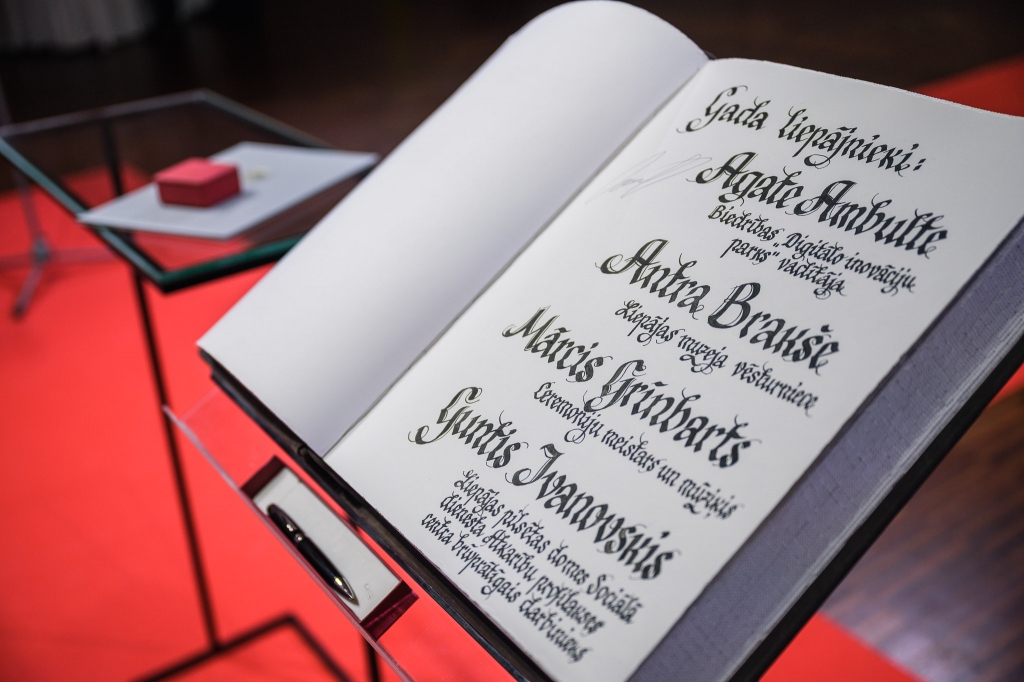 Gada liepājnieki:
Agate Ambulte
Biedrības „Digitālo inovāciju
parks" vadītāja
Antra Braukše
Liepājas muzeja vēsturniece
Mārcis Grīnbarts
Ceremoniju meistars un mūziķis
Guntis Ivanovskis
Liepājas pilsētas domes Sociālā
dienesta Atkarību profilakses
centra brīvprātīgais darbinieks